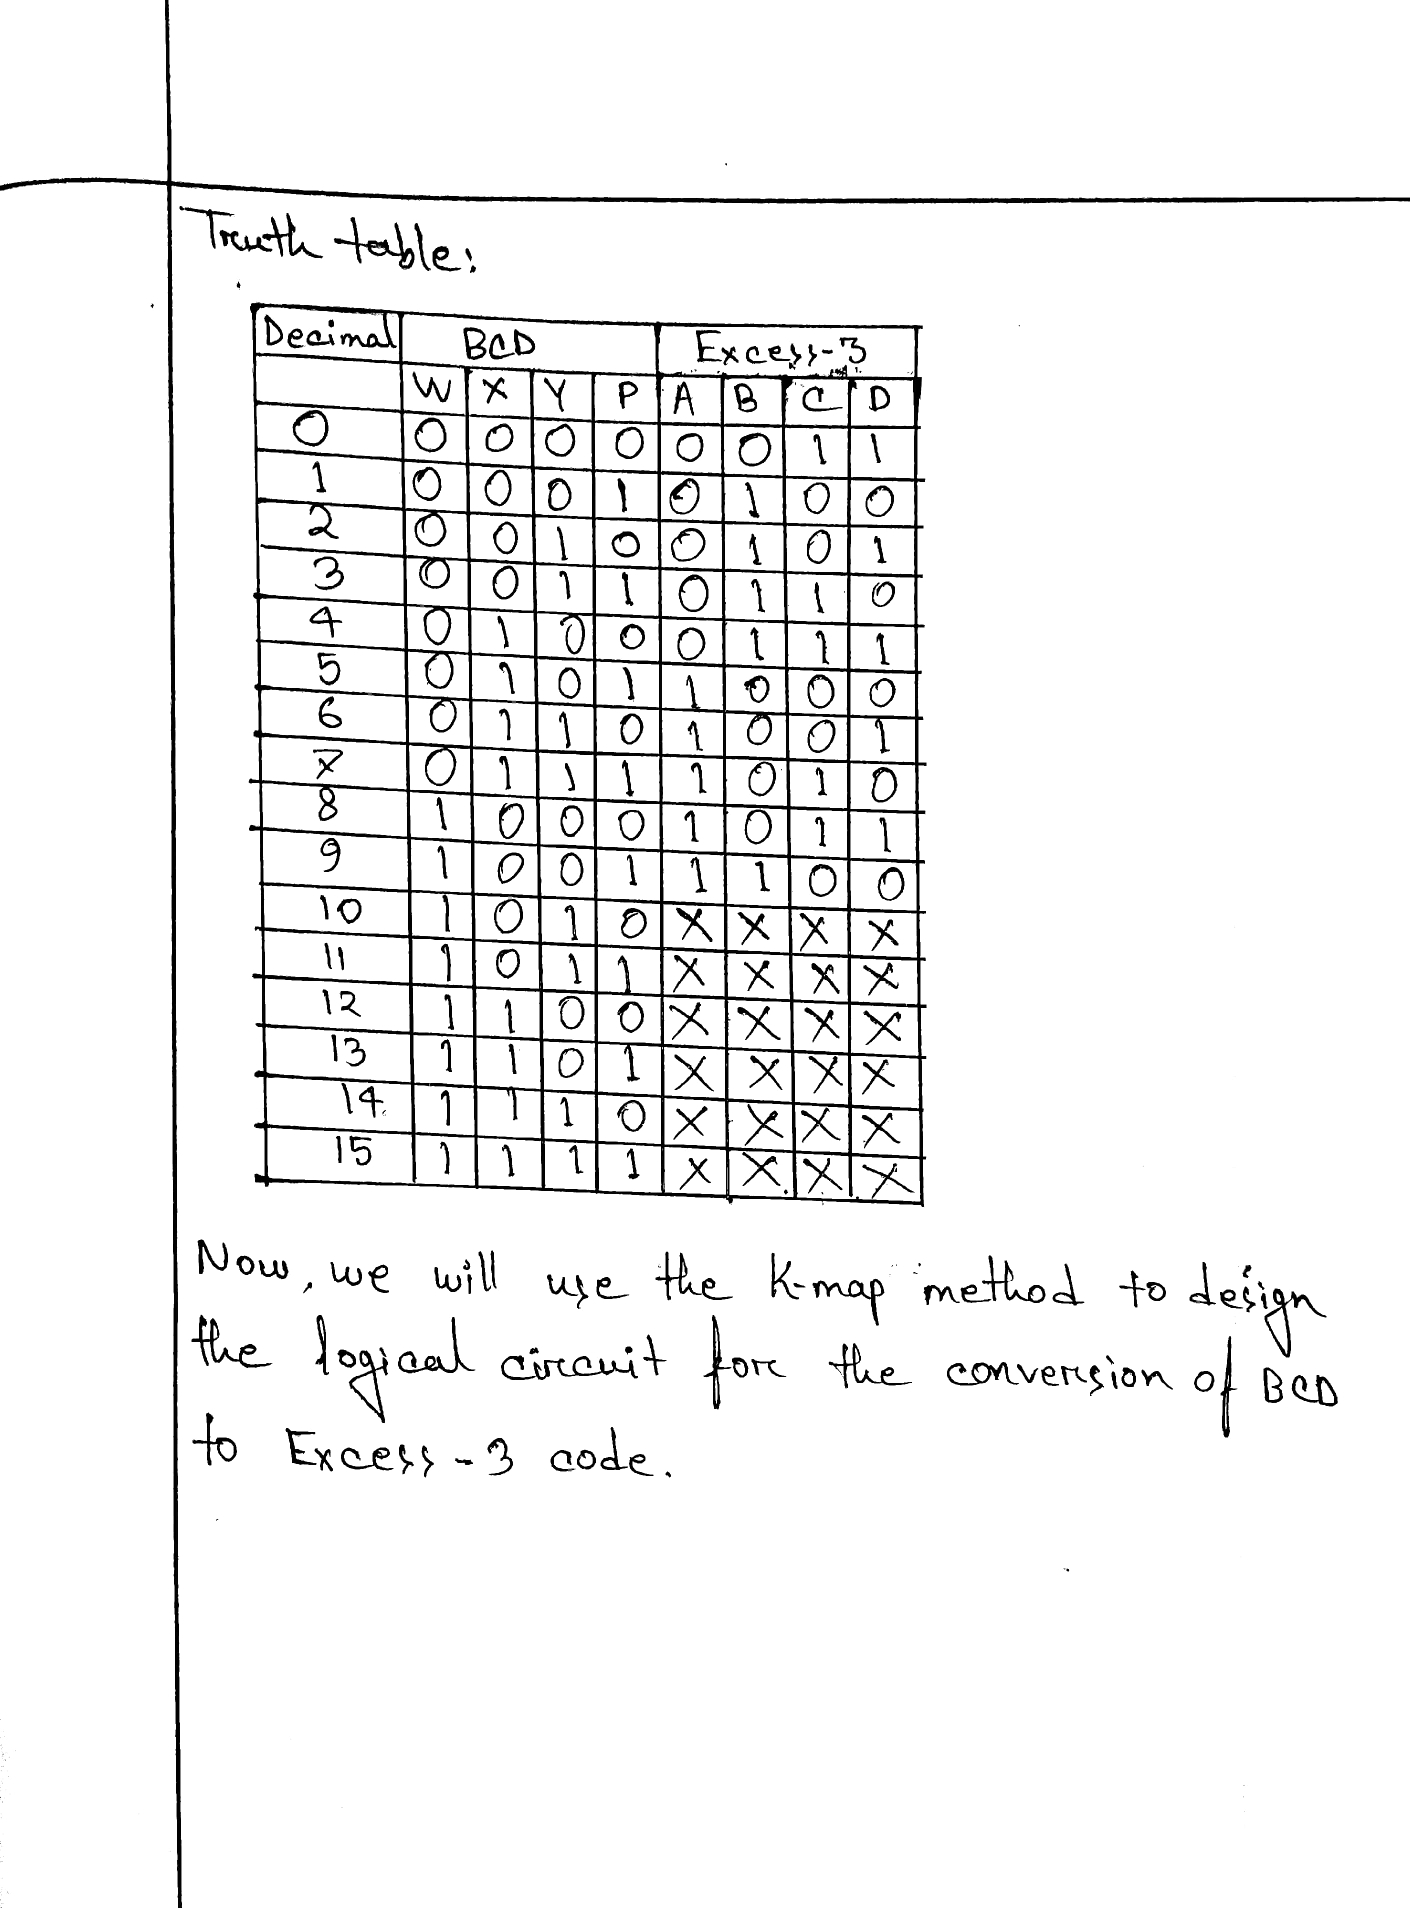 Truth table:
Decimal BCD Excess-3
W X Y P A B C D
0 0 0 0 0 0 0 1 1
1 0 0 0 1 0 1 0 0
2 0 0 1 0 0 1 0 1
3 0 0 1 1 0 1 1 0
4 0 1 0 0 0 1 1 1
5 0 1 0 1 1 0 0 0
6 0 1 1 0 1 0 0 1
7 0 1 1 1 1 0 1 0
8 1 0 0 0 1 0 1 1
9 1 0 0 1 1 1 0 0
10 1 0 1 0 X X X X
11 1 0 1 1 X X X X
12 1 1 0 0 X X X X
13 1 1 0 1 X X X X
14 1 1 1 0 X X X X
15 1 1 1 1 X X X X
Now, we will use the K-map method to design
the logical circuit for the conversion of BCD
to Excess-3 code.